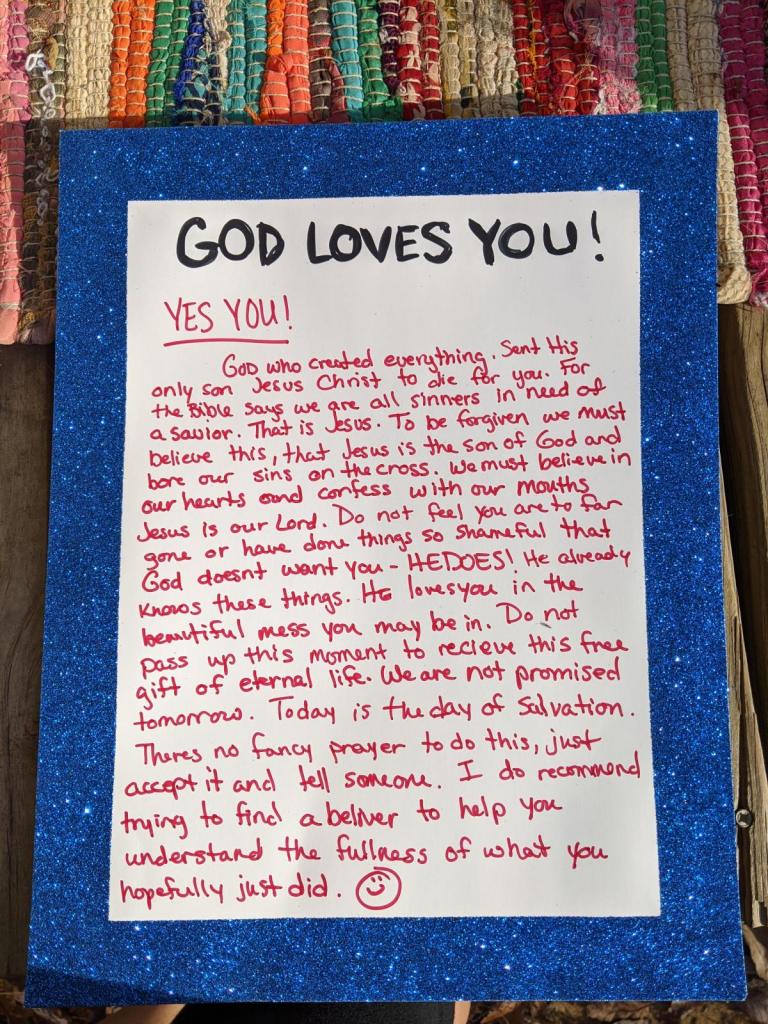 GOD LOVES YOU!
YES YOU!
GOD who created everything. Sent His
only son Jesus Christ to die for you. For
the Bible says we are all sinners in need of
a savior. That is Jesus. To be forgiven we must
believe this, that Jesus is the son of God and
bore our sins on the cross. We must believe in
our hearts and confess with our mouths
Jesus is our Lord. Do not feel you are to far
gone or have done things so shameful that
God doesnt want you - HE DOES! He already
knows these things. He loves you in the
beautiful mess you may be in. Do not
pass up this moment to recieve this free
gift of eternal life. We are not promised
tomorrow. Today is the day of Salvation.
Theres no fancy prayer to do this, just
accept it and tell someone. I do recommend
trying to find a beliver to help you
understand the fullness of what you
hopefully just did.